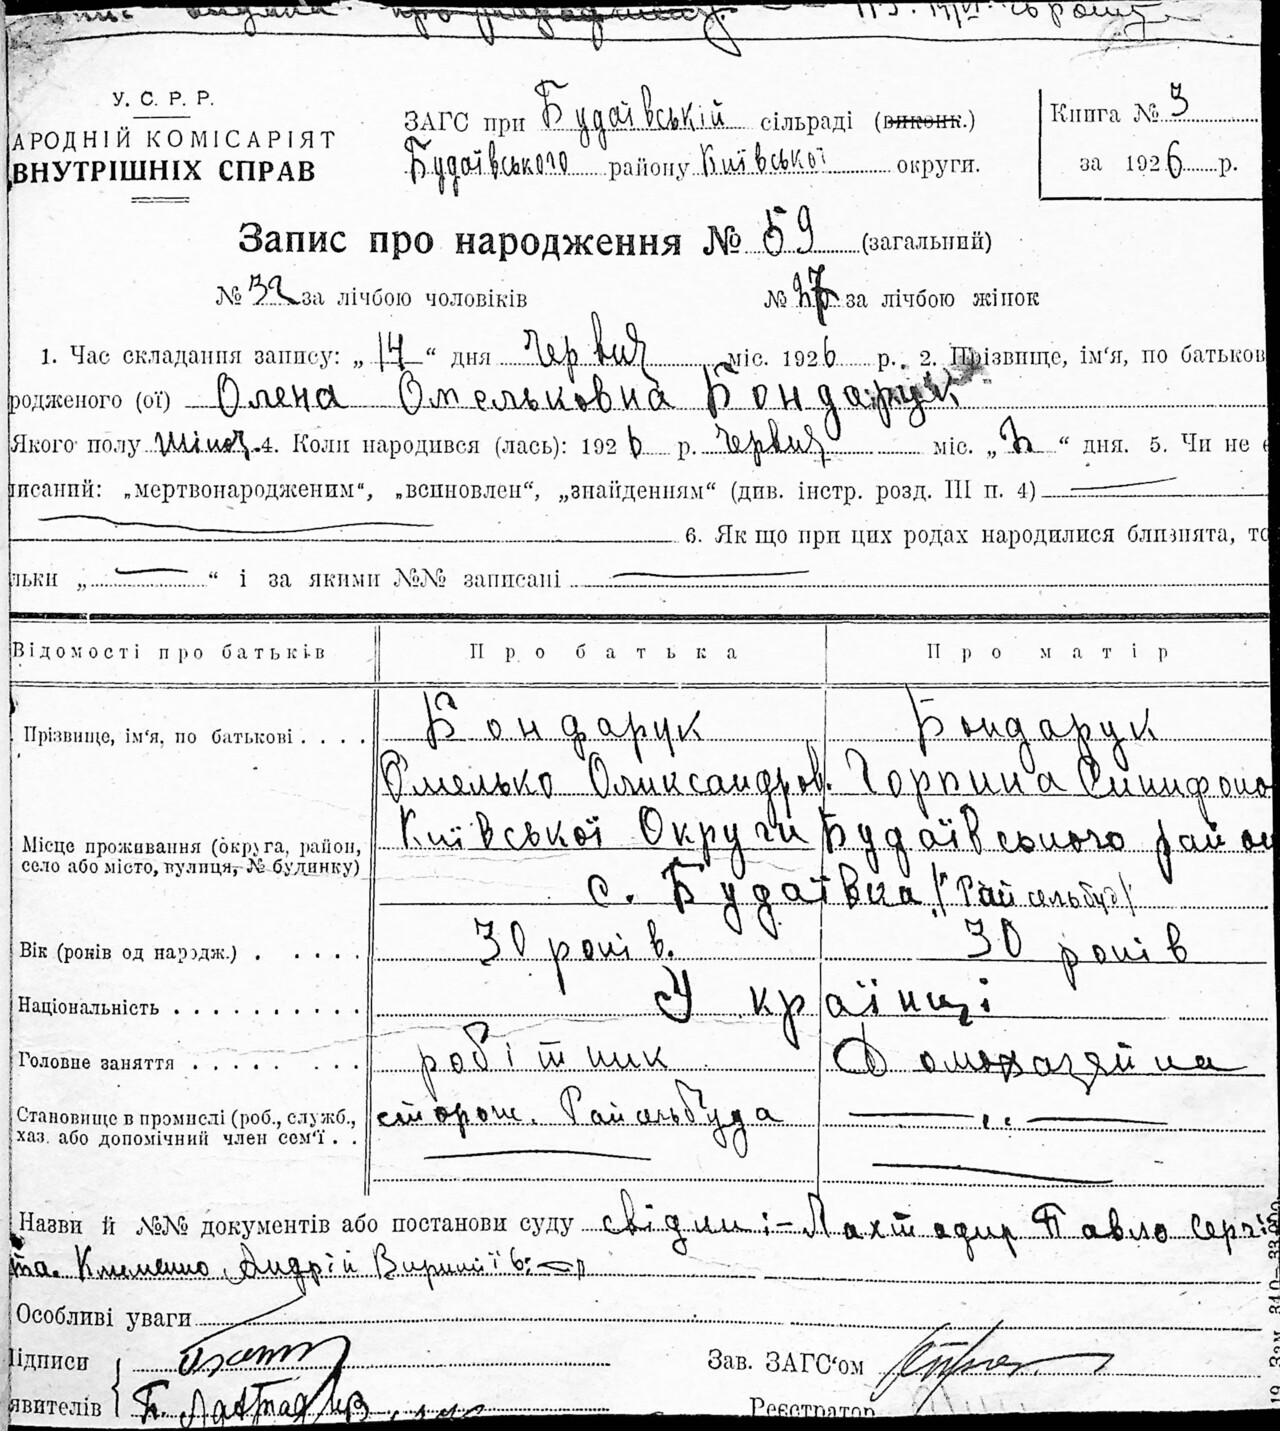 У. С. Р. Р.
АРОДНІЙ КОМІСАРІЯТ
ВНУТРІШНІХ СПРАВ
ЗАГС при Будаївській сільраді (виконк.)
Будаївського району Київської округи.
Книга № 3
за 1926 р.
Запис про народження № 59 (загальний)
№ 32 за лічбою чоловіків № 27 за лічбою жінок
1. Час складання запису: „14“ дня червня міс. 1926 р. 2. Прізвище, ім‘я, по батьков
родженого (ої) Олена Омельковна Бондарук
Якого полу жіноч. 4. Коли народився (лась): 1926 р. червня міс. „ “ дня. 5. Чи не є
писаний: „мертвонародженим“, „всиновлен“, „знайденням“ (див. інстр. розд. III п. 4)
6. Як що при цих родах народилися близнята, то
льки „ “ і за якими №№ записані
Відомості про батьків Про батька Про матір
Прізвище, ім‘я, по батькові . . . . Бондарук Бондарук
Омелько Олександров. Горпина
Місце проживання (округа, район, село або місто, вулиця, № будинку) Київської Округи Будаївського район
с. Будаївка /Райсельбуд/
Вік (років од народж.) . . . . . 30 років. 30 років
Національність . . . . . . . . . . Українці
Головне заняття . . . . . . . . робітник Домохазяйка
Становище в промислі (роб., служб., хаз. або допомічний член сем‘ї . . сторож. Райсельбуда „
Назви й №№ документів або постанови суду свідки:- Лахтадир Павло Сергі
та. Клименко Андрій
Особливі уваги
Підписи
явителів
П. Лахтадир
Зав. ЗАГС‘ом
Реєстратор